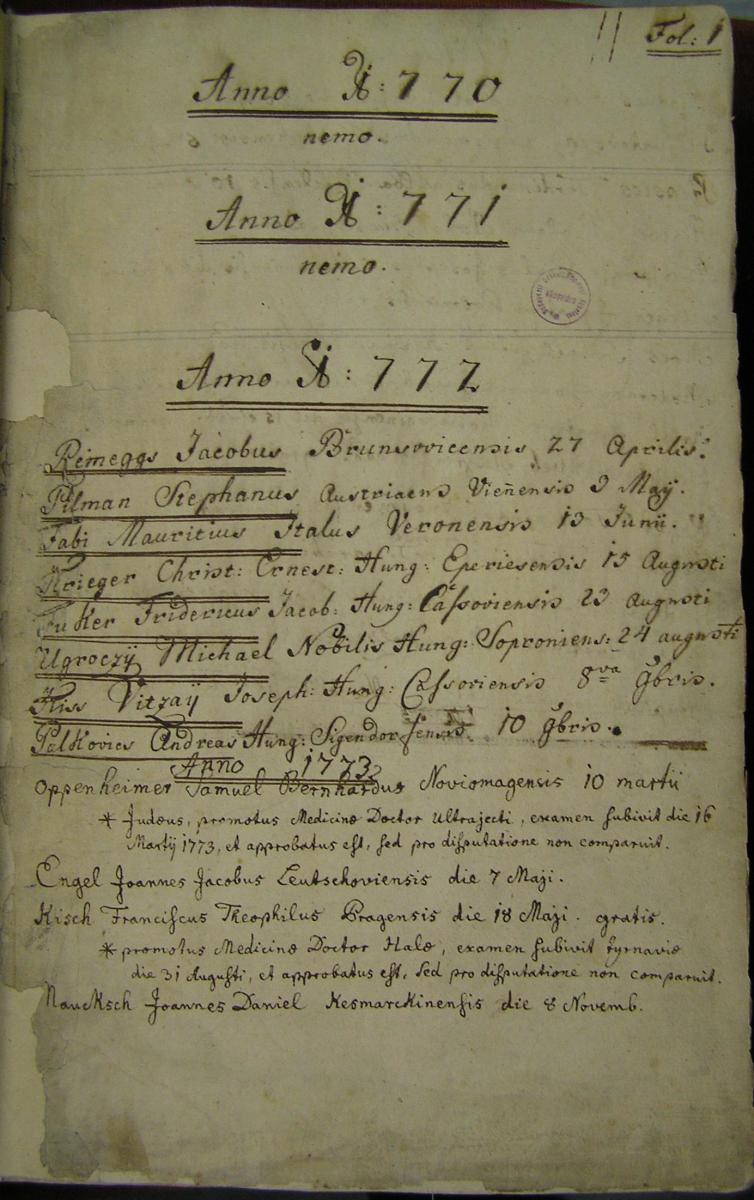 Fol: 1
Anno 1770
nemo.
Anno 1771
nemo.
Anno 1772
Reineggs Jacobus Brunsovicensis 27 Aprilis.
Pilman Stephanus Austriacus Vieñensis 9 Maÿ.
Fabi Mauritius Italus Veronensis 13 Junii.
Krieger Christ: Ernest: Hung: Eperiesensis 15 Augusti
Fuker Fridericus Jacob: Hung: Cassoviensis 23 augusti
Ugroczÿ Michael Nobilis Hung: Soproniens: 24 augusti
Kiss Vitzaÿ Joseph: Hung: Cassoviensis 8va 9bris.
Palkovics Andreas Hung: 10 9bris.
Anno 1773
Oppenheimer Samuel Bernhardus Noviomagensis 10 martii
* Judæus, promotus Medicinæ Doctor Ultrajecti, examen subivit die 16
Martij 1773, et approbatus est, sed pro disputatione non comparuit.
Engel Joannes Jacobus Leutschoviensis die 7 Maji.
Kisch Franciscus Theophilus Pragensis die 18 Maji. gratis.
* promotus Medicinæ Doctor Halæ, examen subivit Tyrnaviæ
die 31 Augusti, et approbatus est, sed pro disputatione non comparuit.
Naucksch Joannes Daniel Kesmarckinensis die 8 Novemb.